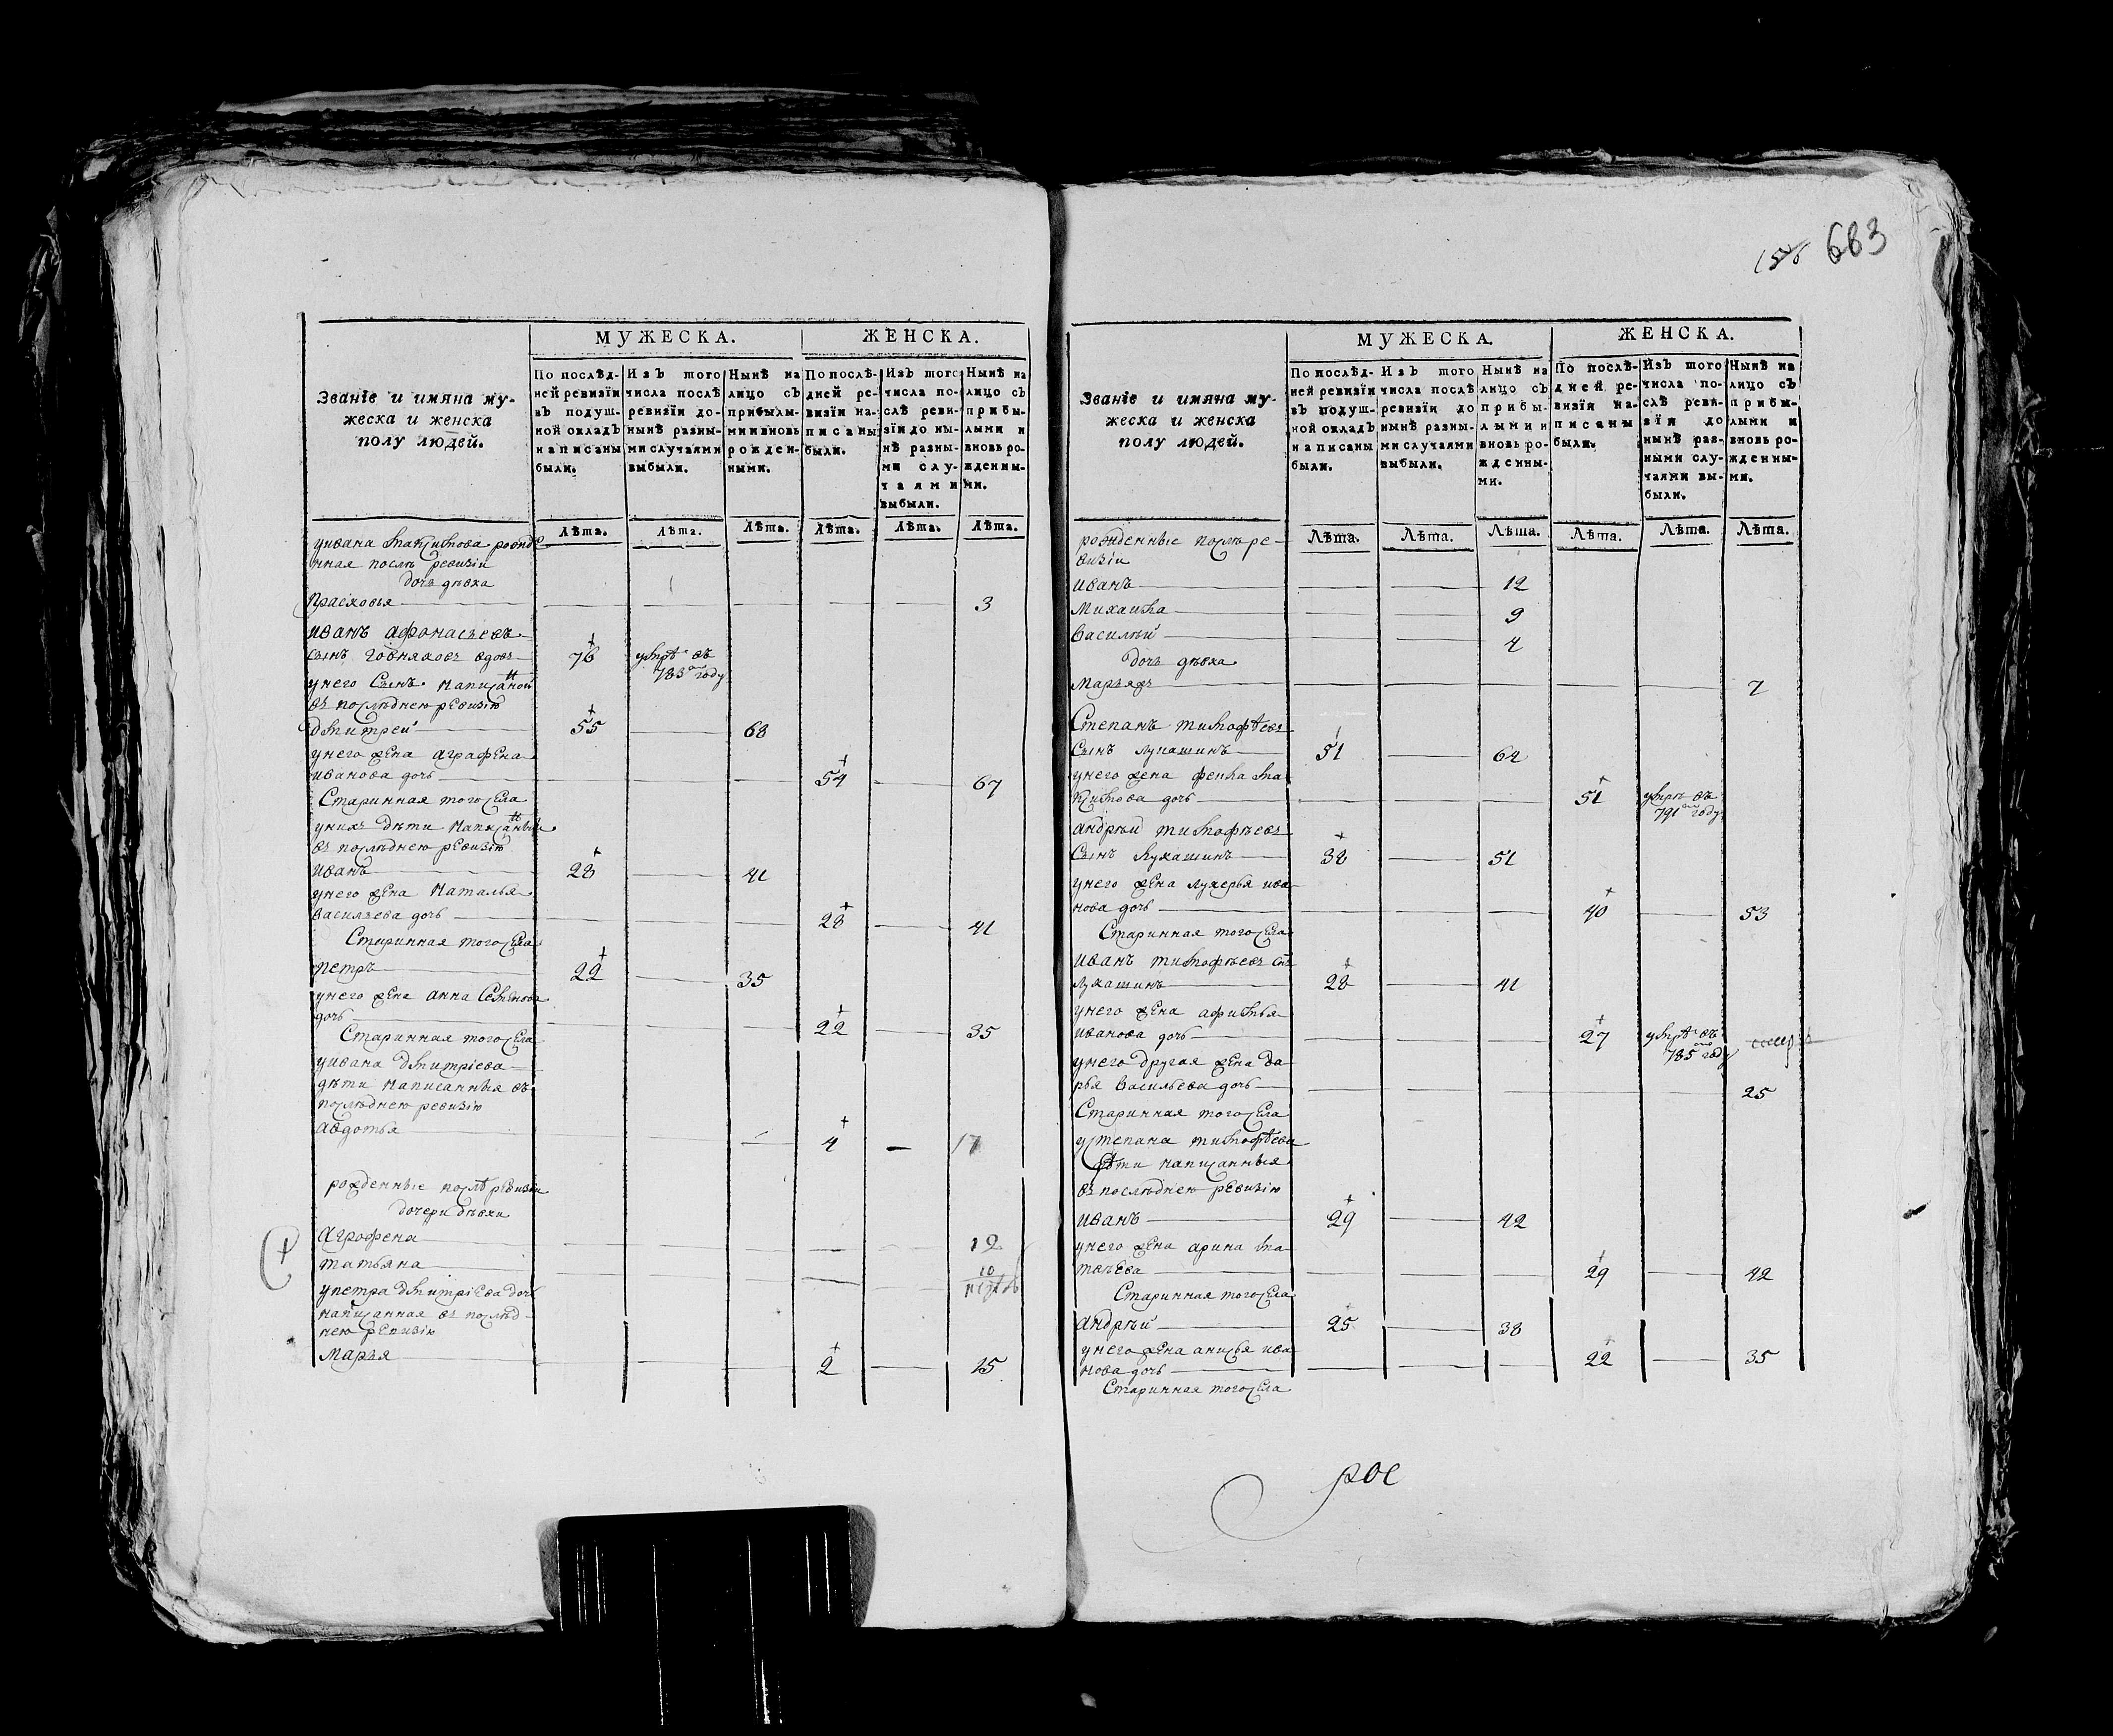 683
МУЖЕСКА. ЖЕНСКА.
Званїе и имяна му-
жеска и женска
полу людей.
По послѣд-
ней ревизїи
въ подуш-
ной окладъ
написаны
были.
Изъ того
числа послѣ
ревизїи до-
нынѣ разны-
ми случаями
выбыли.
Нынѣ на
лицо съ
прибылы-
ми и вновь
рожден-
ными.
По послѣ-
дней ре-
визїи на-
писаны
были.
Изъ того
числа по-
слѣ реви-
зїи до ны-
нѣ разны-
ми слу-
чаями
выбыли.
Нынѣ на
лицо съ
прибы-
лыми и
вновь ро-
жденны-
ми.
Лѣта. Лѣта. Лѣта. Лѣта. Лѣта. Лѣта.
уивана максимова рожде
нная послѣ ревизiи
дочь дѣвка
Прасковья 3
иванъ афонасьевъ
сынъ говняковъ вдовъ 76 умрѣ въ
783 году
унего сынъ написаной
въ послѣднею ревизiю
дмитрей 55 68
унего жена аграфена
иванова дочь 54 67
Старинная того села
унихъ дѣти написанныя
въ послѣднею ревизiю
иванъ 28 41
унего жена наталья
васильева дочь 28 41
Старинная того села
петръ 22 35
унего жена анна семенова
дочь 22 35
Старинная того села
уивана дмитрiева
дѣти написанныя въ
послѣднею ревизiю
авдотья 4 17
рожденные послѣ ревизiи
дочери дѣвки
Агрофена 12
татьяна 10
упетра дмитрiева дочь
написанная въ послѣд-
нею ревизiю
марья 2 15
МУЖЕСКА. ЖЕНСКА.
Званїе и имяна му-
жеска и женска
полу людей.
По послѣд-
ней ревизїи
въ подуш-
ной окладъ
написаны
были.
Изъ того
числа послѣ
ревизїи до
нынѣ разны-
ми случаями
выбыли.
Нынѣ на
лицо съ
прибы-
лыми и
вновь ро-
жденны-
ми.
По послѣ-
дней ре-
визїи на-
писаны
были.
Изъ того
числа по-
слѣ реви-
зїи до
нынѣ раз-
ными слу-
чаями вы-
были.
Нынѣ на
лицо съ
прибы-
лыми и
вновь ро-
жденны-
ми.
Лѣта. Лѣта. Лѣта. Лѣта. Лѣта. Лѣта.
рожденные послѣ ре-
визiи
иванъ 12
михаила 9
василей 4
дочь дѣвка
7
Степанъ тимофѣевъ
сынъ лукашинъ 51 64
унего жена фекла ма
ксимова дочь 51 умрѣ въ
791 году
андрѣй тимофѣевъ
сынъ лукашинъ 38 51
унего жена лукерья ива
нова дочь 40 53
Старинная того села
иванъ тимофѣевъ сынъ
лукашинъ 28 41
унего жена афимья
иванова дочь 27 умрѣ въ
785 году
унего другая жена да
рья васильева дочь 25
Старинная того села
устепана тимофѣева
дѣти написанныя
въ послѣднею ревизiю
иванъ 29 42
унего жена арина ма
твѣева 29 42
Старинная того села
андрѣй 25 38
унего жена анисья ива
нова дочь 22 35
Старинная того села
рое